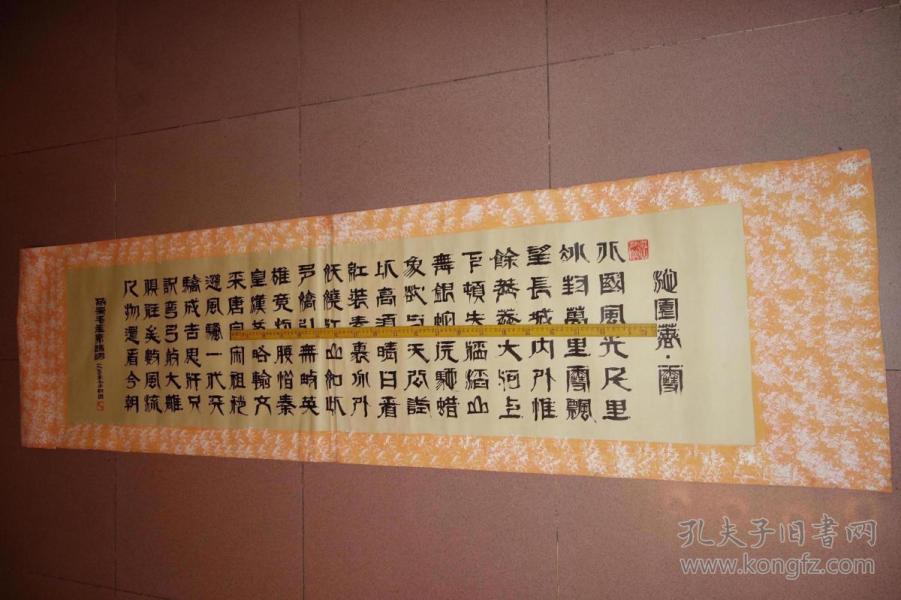 沁園春·雪
北國風光千里
冰封萬里雪飄
望長城內外惟
餘莽莽大河上
下頓失滔滔山
舞銀蛇原馳蠟
象欲与天公試
比高須晴日看
紅裝素裹分外
妖嬈江山如此
多嬌引無數英
雄竞折腰惜秦
皇漢武略輸文
采唐宗宋祖稍
遜風騷一代天
驕成吉思汗只
識彎弓射大雕
俱往矣數風流
人物還看今朝
孔夫子旧书网
www.kongfz.com